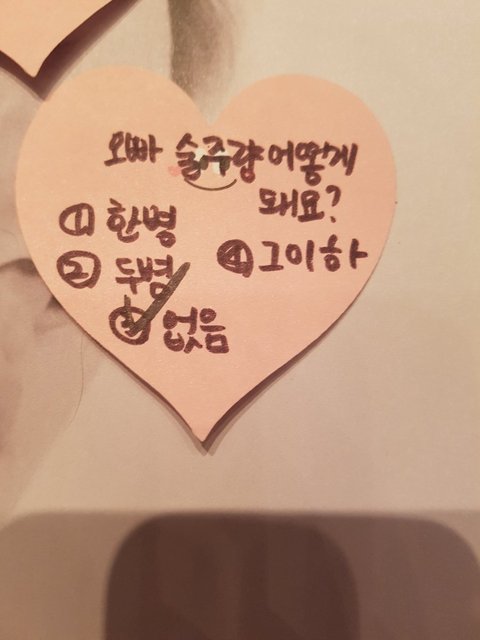 오빠 술주량 어떻게
돼요?
① 한병
② 두병
④ 그이하
③ 없음